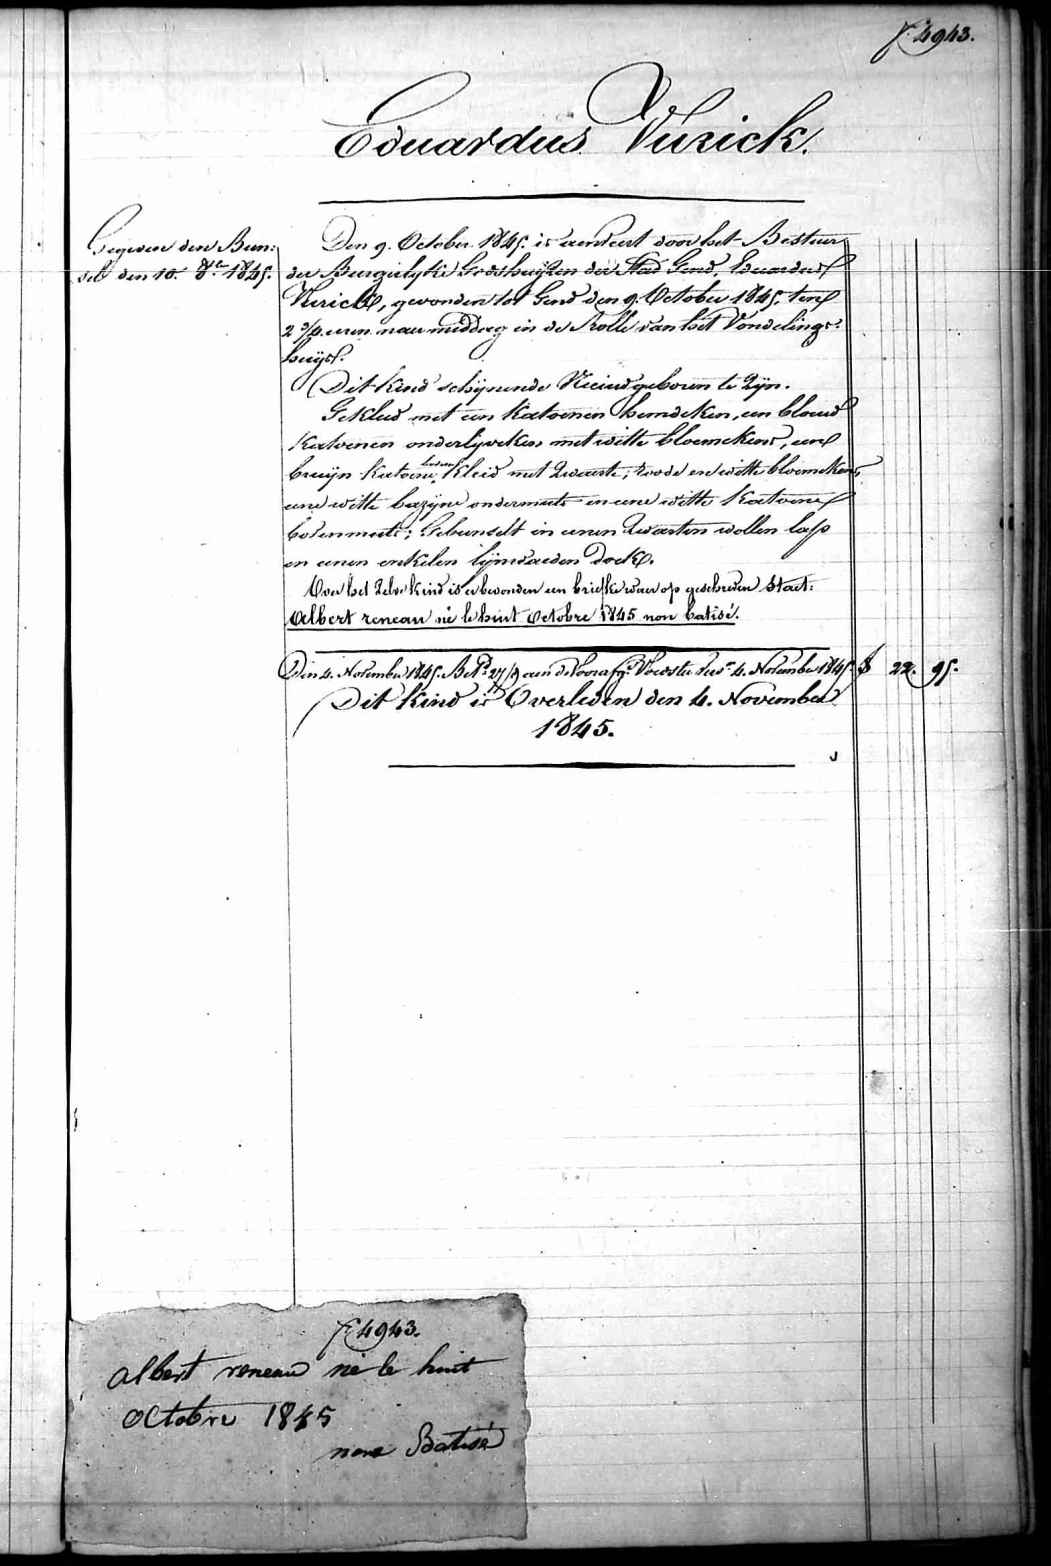 f. 4943.
Eduardus Vurick.
Gegeven den Bun:
del den 10. 8.e 1845.
Den 9. October 1845. is aenveert door het Bestuer
der Burgerlyke Godshuijzen der Stad Gend, Eduardus
Vurick, gevonden tot Gend den 9. October 1845. ten
2 3/4 uren naer middag in de Rolle van het Vondelings:
huijs.
Dit kind schijnende Nieuwgeboren te Zijn.
Gekleed met een katoenen hemdeken, een blouw
katoenen onderlijveken met witte bloemekens, een
bruijn katoene kleed met Zwarte, roode en witte bloemekens,
eene witte bazijne ondermuts en eene witte katoene
bovenmuts; Gebunselt in eenen Zwarten wollen lap
en eenen enkelen lijnwaeden Doek.
Over het Zelve kind is er bevonden een briefke waer op geschreven staet:
Albert reneau né le huit Octobre 1845 non batisé.
Den 4. November 1845. Bet.d 27/9 aen de voorafg.e Voedster 4. November 1845. f 22. 95.
Dit kind is Overleden den 4. November
1845.
f. 4943.
albert reneau né le huit
Octobre 1845
non Batisé